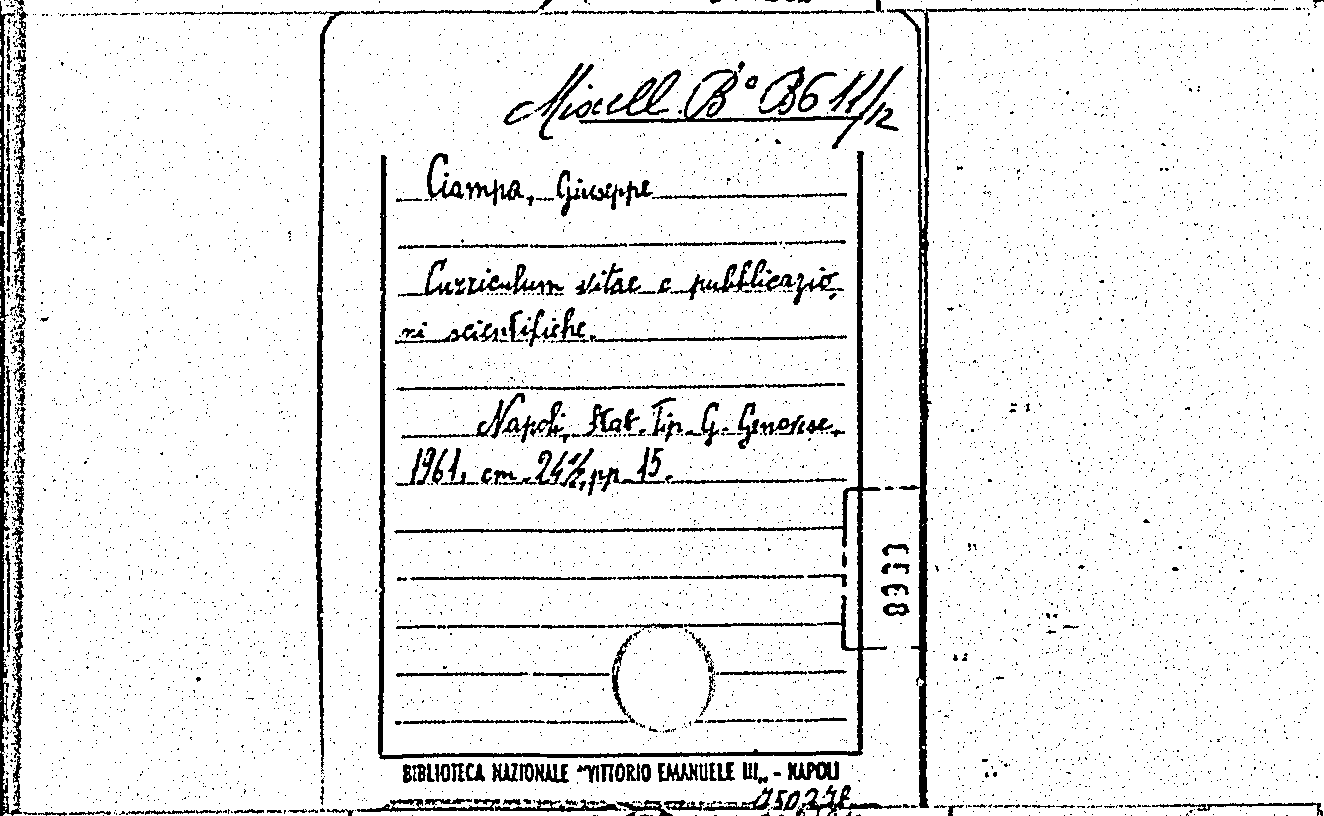 Miscell. B° B6 11/12
Ciampa, Giuseppe
Curriculum vitae e pubblicazio,
ni scientifiche.
Napoli, Stab. Tip. G. Genovese,
1961, cm. 24½, pp. 15.
BIBLIOTECA NAZIONALE "VITTORIO EMANUELE III„ - NAPOLI